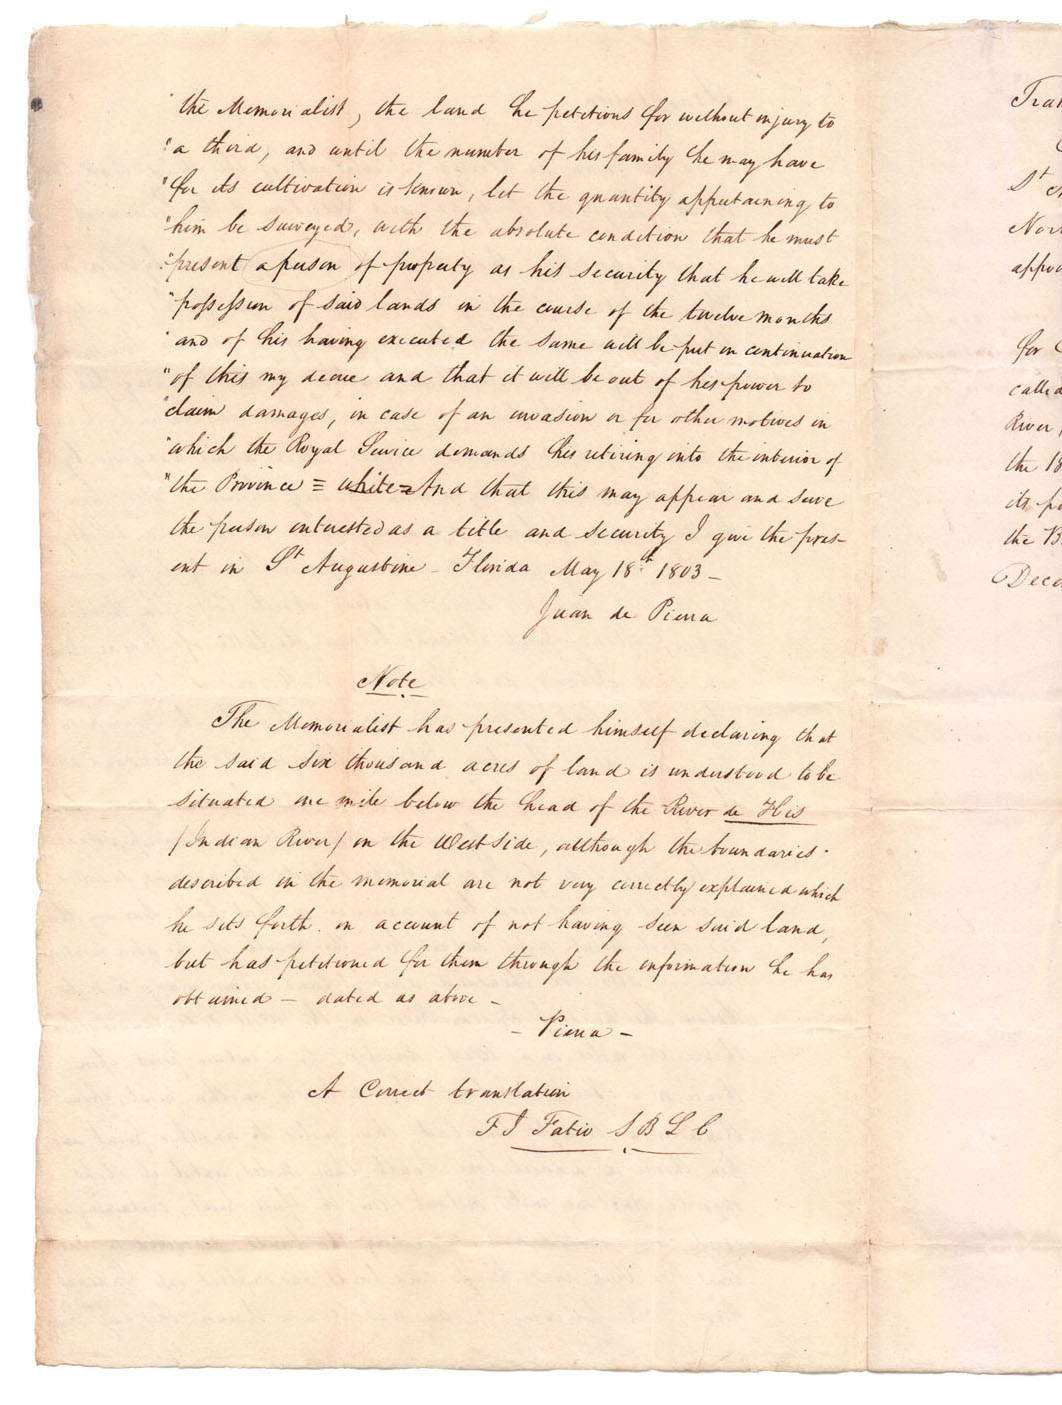 "the Memorialist, the land he petitions for without injury to
"a third, and until the number of his family he may have
"for its cultivation is known, let the quantity appertaining to
"him be surveyed, with the absolute condition that he must
"present a person of property as his security that he will take
"possession of said lands in the course of the twelve months
"and of his having executed the same will be put in continuation
"of this my decree and that it will be out of his power to
"claim damages, in case of an invasion or for other motives in
"which the Royal Service demands his retiring into the interior of
"the Province = White = And that this may appear and serve
the person interested as a title and security I give the pres-
ent in St Augustine - Florida May 18th 1803 -
Juan de Pierra
Note
The Memorialist has presented himself declaring that
the said six thousand acres of land is understood to be
situated one mile below the head of the River de His
/Indian River/ on the West side, although the boundaries
described in the memorial are not very correctly explained which
he sets forth on account of not having seen said land,
but has petitioned for them through the information he has
obtained - dated as above -
- Pierra -
A Correct translation
F J Fatio S B L C
St
River
the 18
the